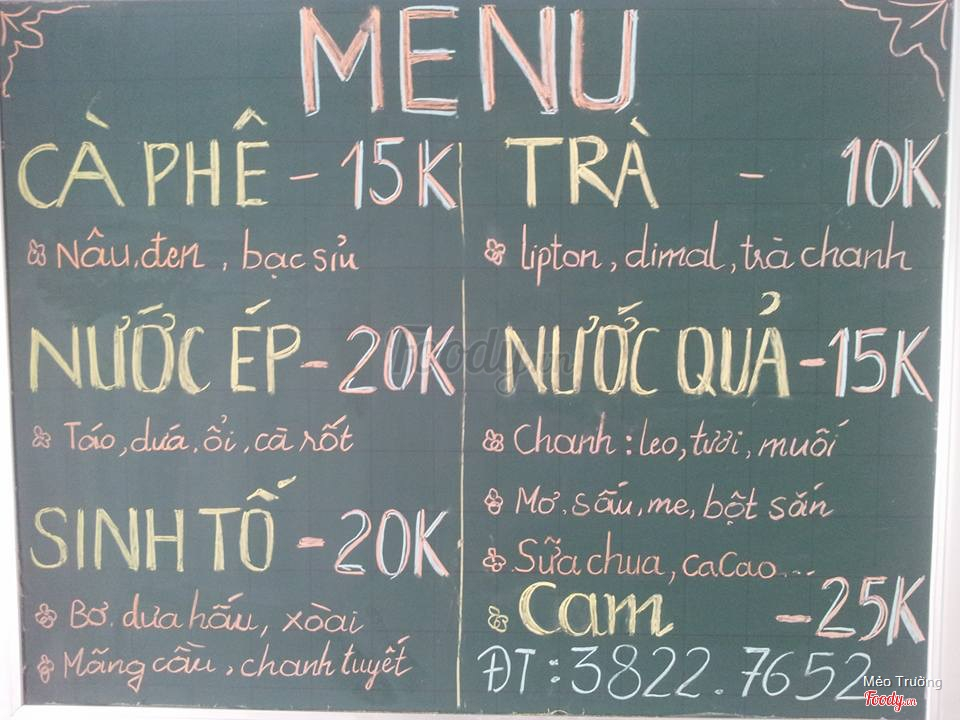 MENU
CÀ PHÊ - 15K
Nâu, đen, bạc sỉu
NƯỚC ÉP - 20K
Táo, dứa, ổi, cà rốt
SINH TỐ - 20K
Bơ. dưa hấu, xoài
Mãng cầu, chanh tuyết
TRÀ - 10K
lipton, dimal, trà chanh
NƯỚC QUẢ - 15K
Chanh : leo, tươi, muối
Mơ, sấu, me, bột sắn
Sữa chua, caCao...
Cam - 25K
ĐT : 3822.7652
Foody.vn
Mèo Trường
Foody.vn